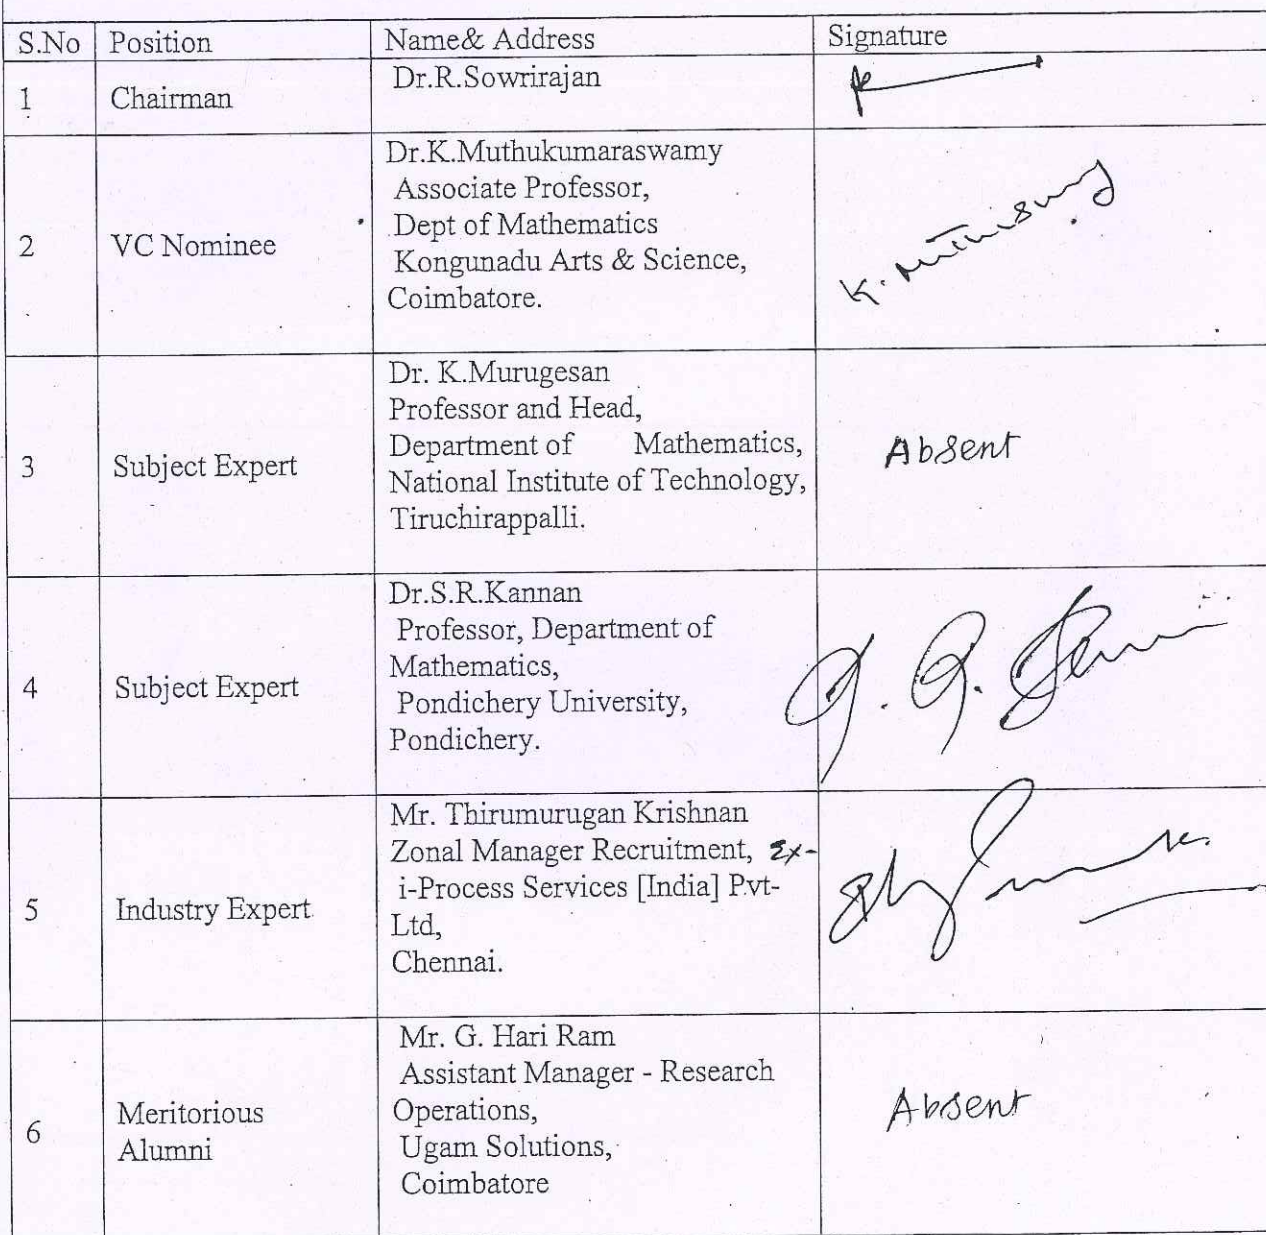 S.No Position Name& Address Signature
1 Chairman Dr.R.Sowrirajan
2 VC Nominee Dr.K.Muthukumaraswamy
Associate Professor,
Dept of Mathematics
Kongunadu Arts & Science,
Coimbatore.
3 Subject Expert Dr. K.Murugesan
Professor and Head,
Department of Mathematics,
National Institute of Technology,
Tiruchirappalli.
Absent
4 Subject Expert Dr.S.R.Kannan
Professor, Department of
Mathematics,
Pondichery University,
Pondichery.
5 Industry Expert Mr. Thirumurugan Krishnan
Zonal Manager Recruitment, Ex-
i-Process Services [India] Pvt-
Ltd,
Chennai.
6 Meritorious
Alumni
Mr. G. Hari Ram
Assistant Manager - Research
Operations,
Ugam Solutions,
Coimbatore
Absent